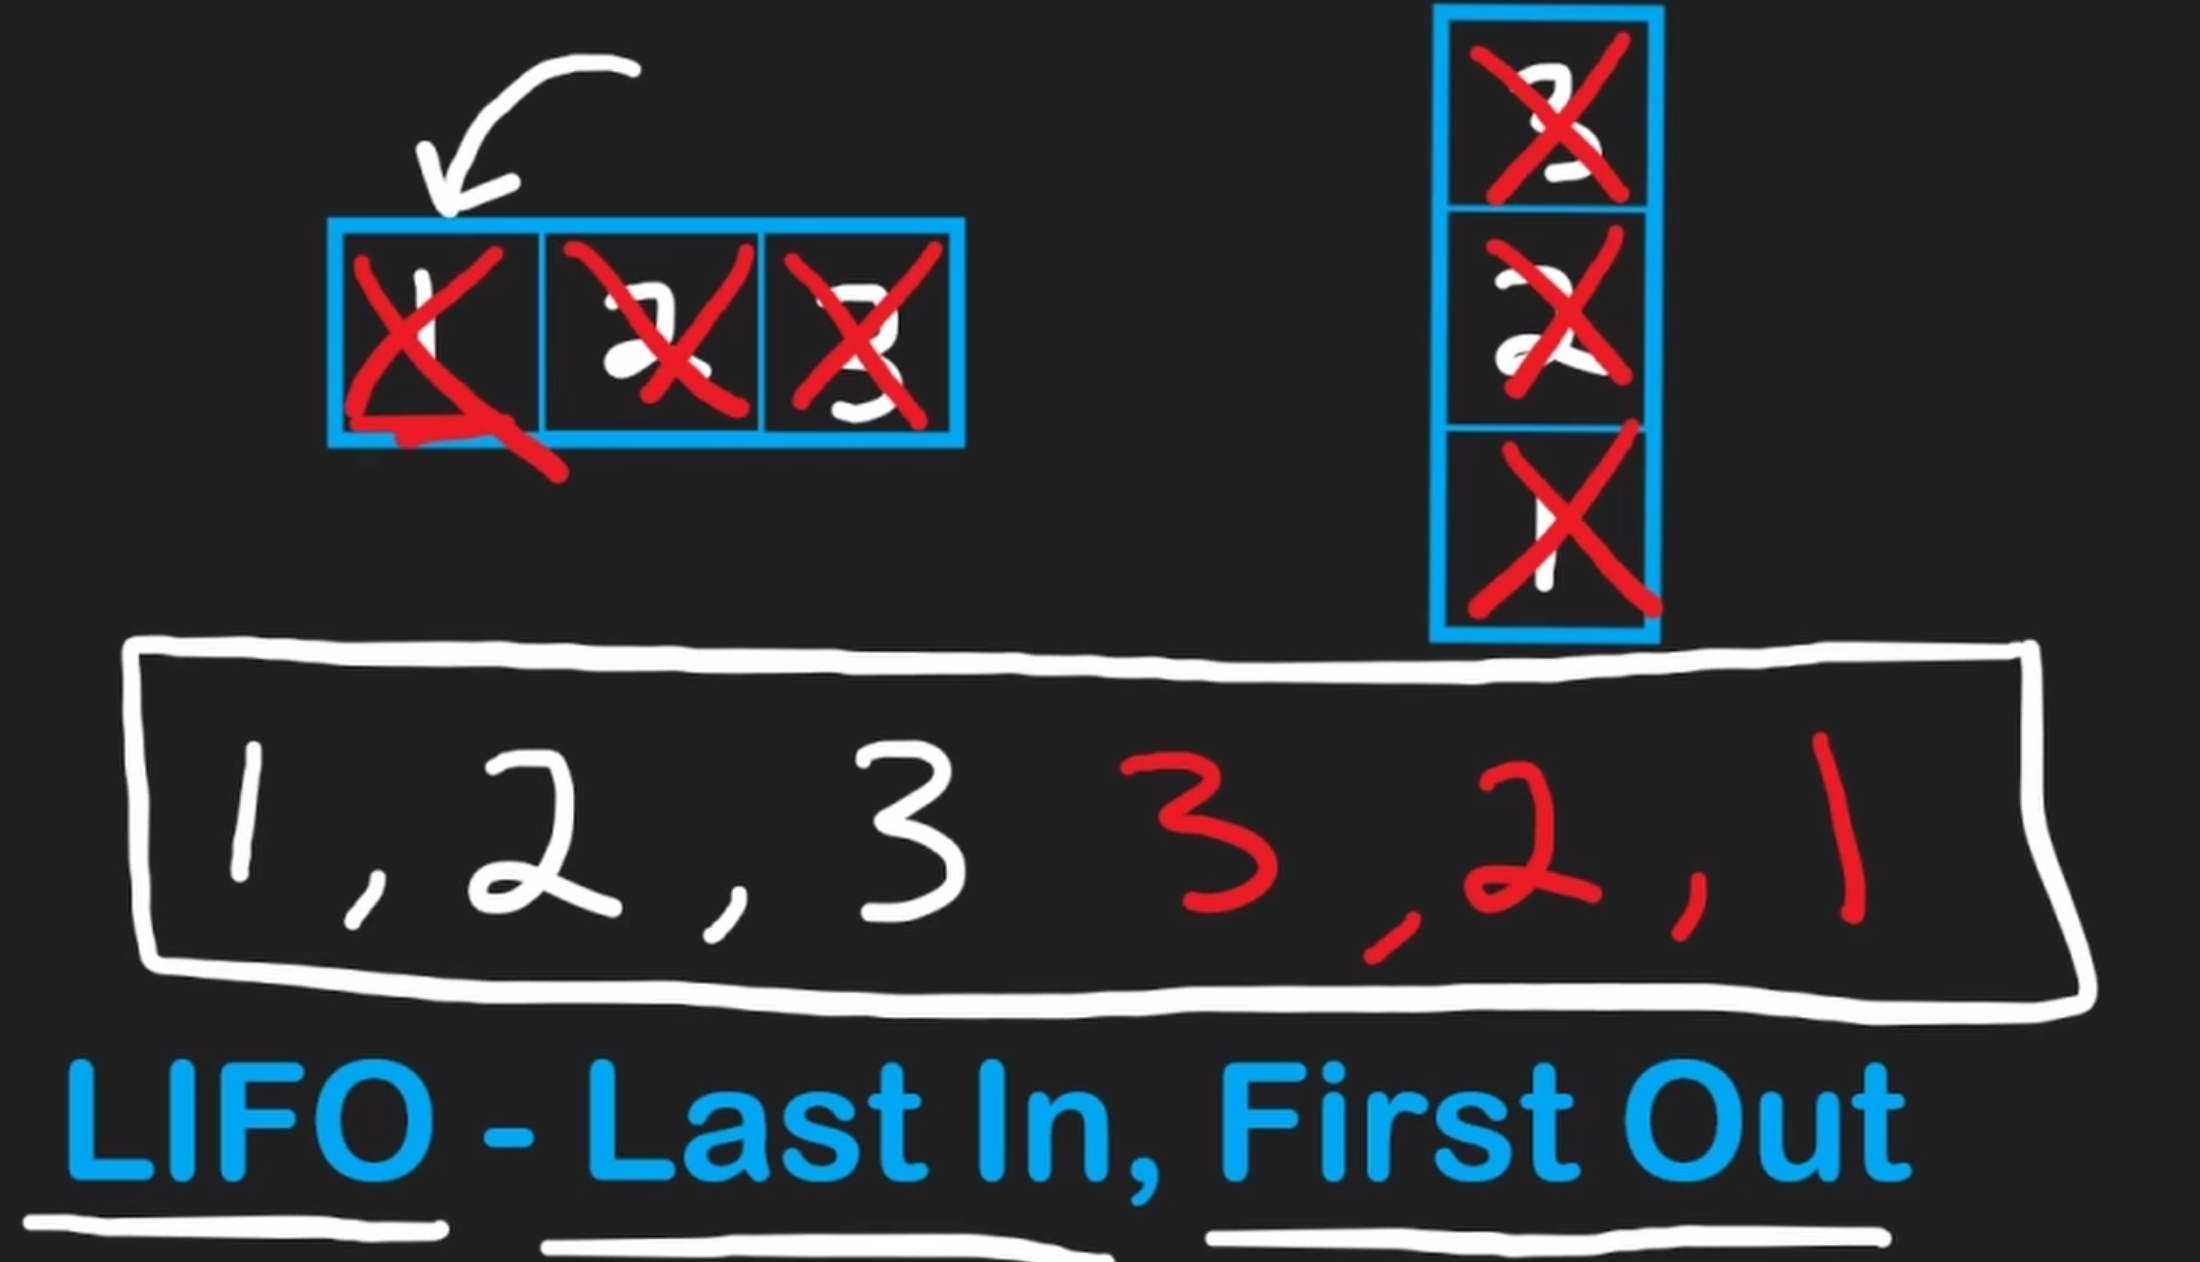 1 2 3
3
2
1
1, 2, 3 3, 2, 1
LIFO - Last In, First Out